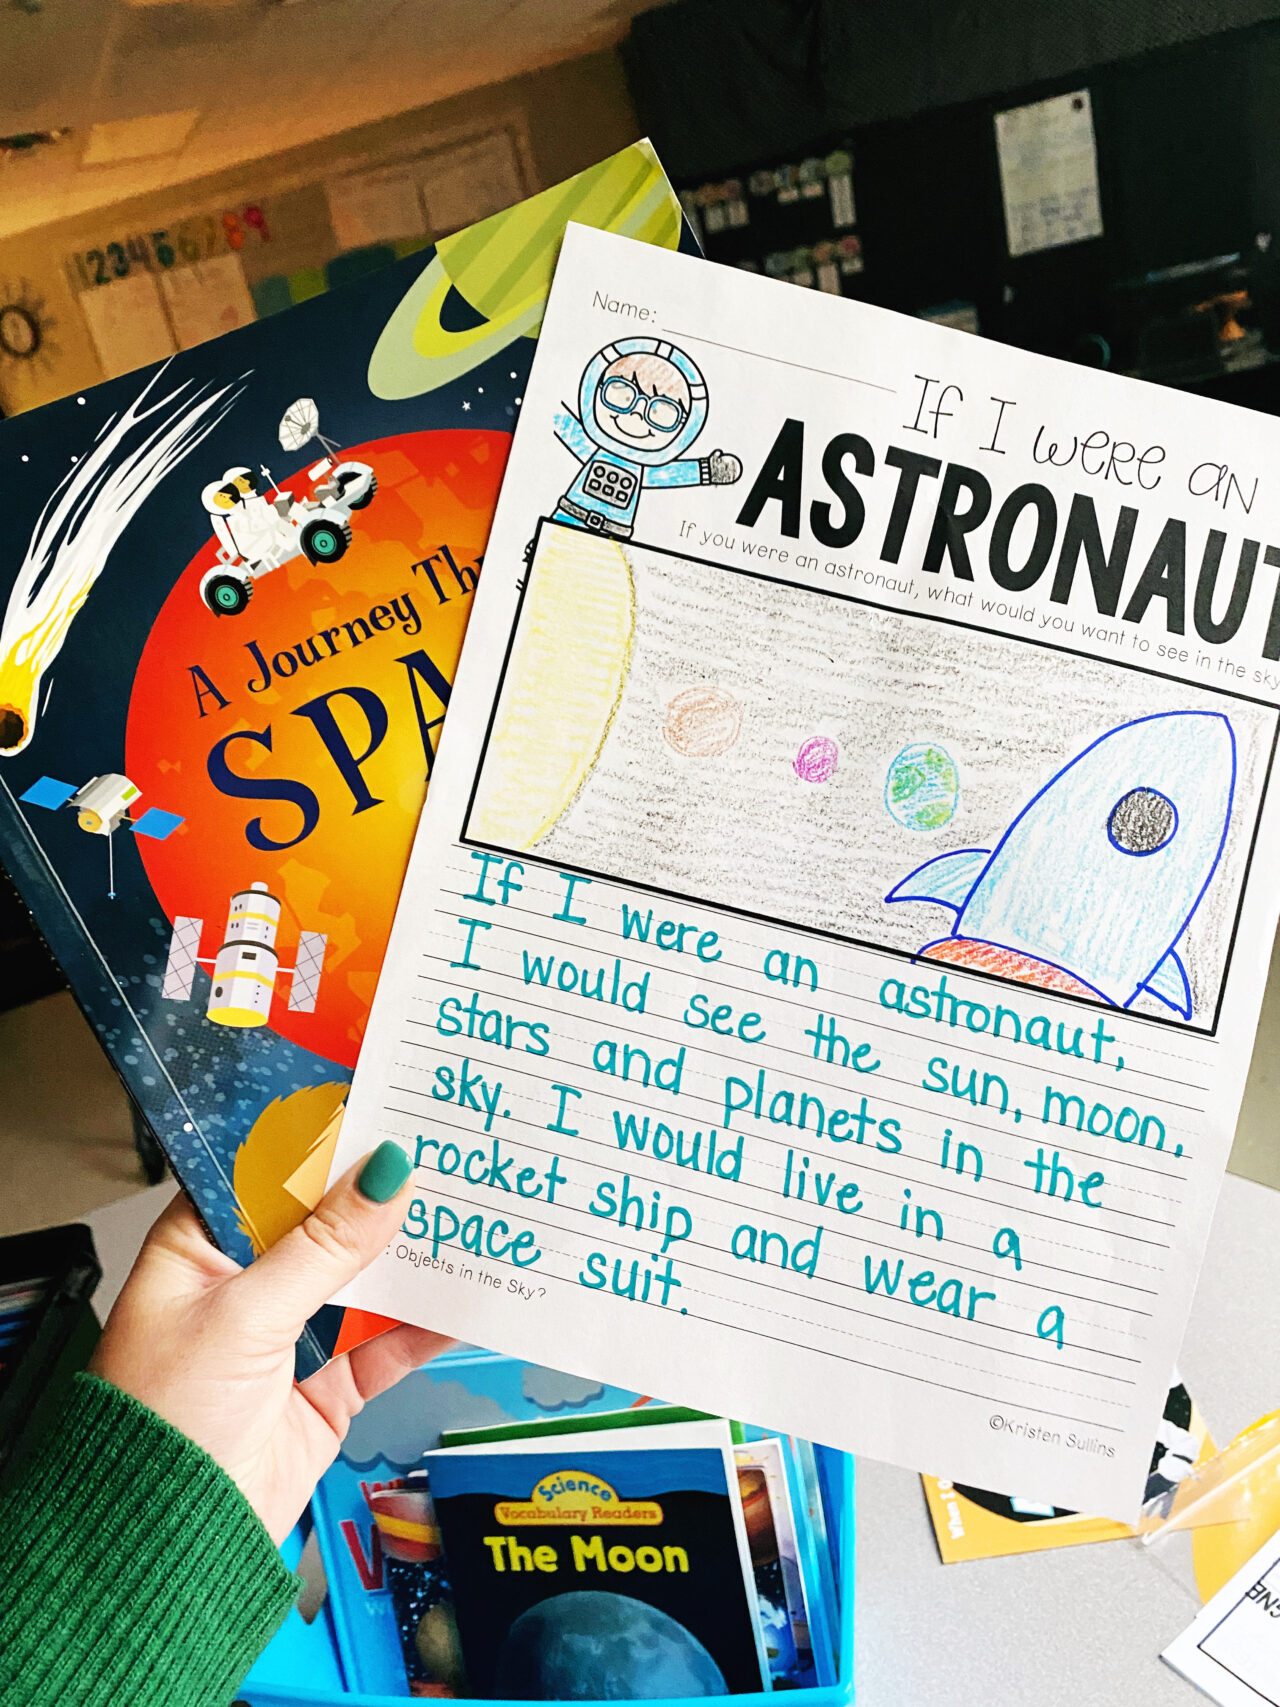 123456789
A Journey Th
SPA
Name:
If I were an
ASTRONAUT
If you were an astronaut, what would you want to see in the sky
If I were an astronaut,
I would see the sun, moon,
stars and planets in the
sky. I would live in a
rocket ship and wear a
space suit.
: Objects in the Sky?
©Kristen Sullins
Science
Vocabulary Readers
The Moon